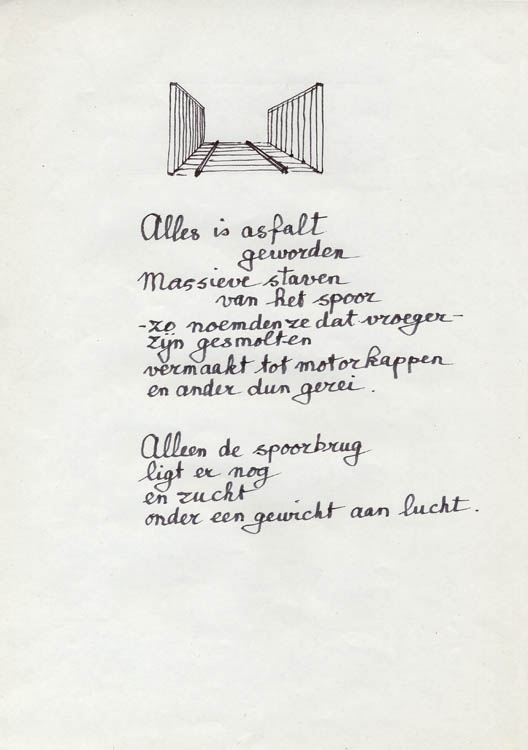 Alles is asfalt
geworden
Massieve staven
van het spoor
-zo noemden ze dat vroeger-
zijn gesmolten
vermaakt tot motorkappen
en ander dun gerei.
Alleen de spoorbrug
ligt er nog
en zucht
onder een gewicht aan lucht.